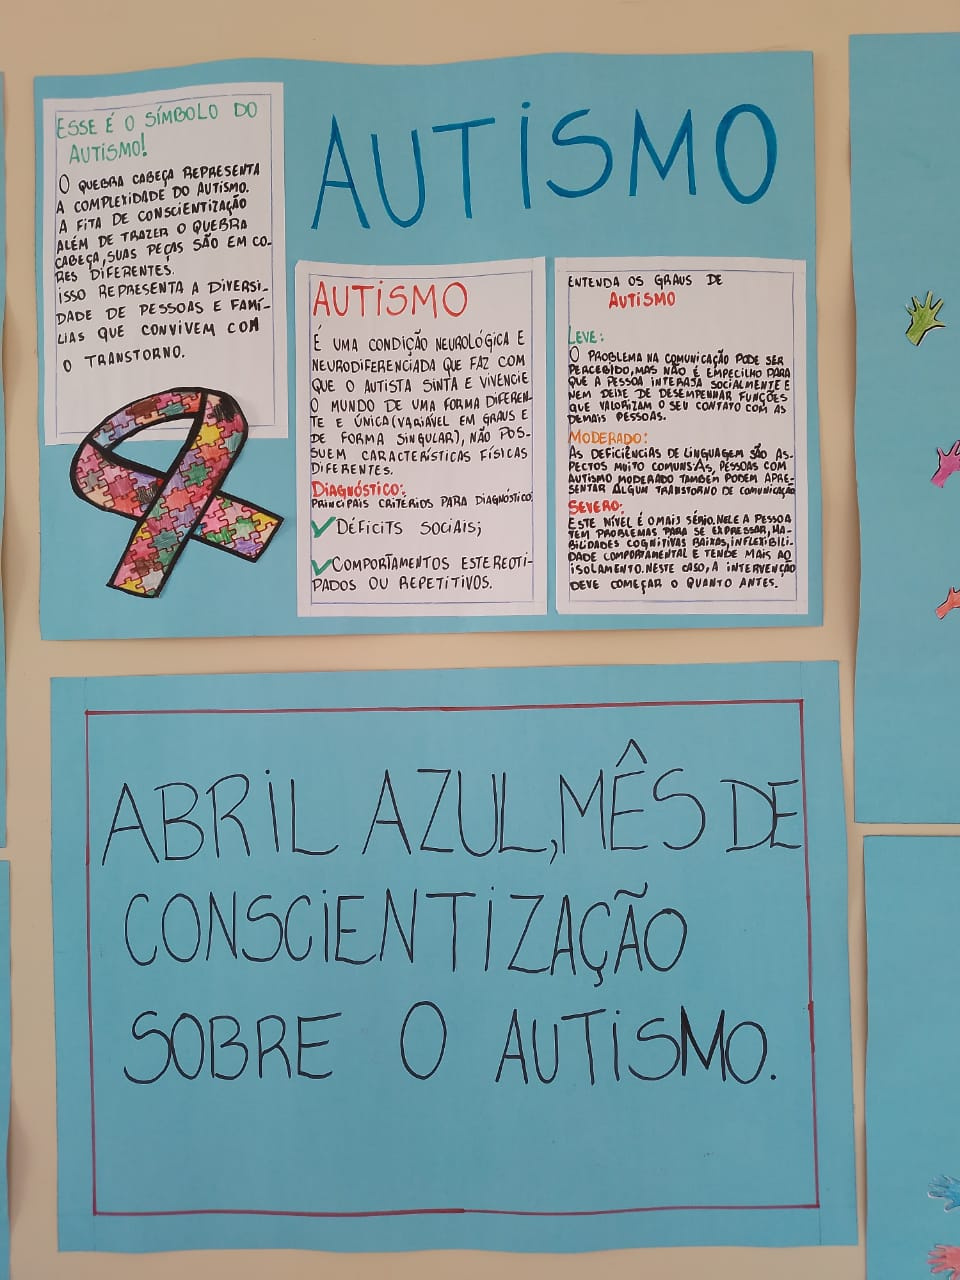 ESSE É O SÍMBOLO DO
AUTISMO!
O QUEBRA CABEÇA REPRESENTA
A COMPLEXIDADE DO AUTISMO.
A FITA DE CONSCIENTIZAÇÃO
ALÉM DE TRAZER O QUEBRA
CABEÇA, SUAS PEÇAS SÃO EM CO-
RES DIFERENTES.
ISSO REPRESENTA A DIVERSI-
DADE DE PESSOAS E FAMÍ-
LIAS QUE CONVIVEM COM
O TRANSTORNO.
AUTISMO
AUTISMO
É UMA CONDIÇÃO NEUROLÓGICA E
NEURODIFERENCIADA QUE FAZ COM
QUE O AUTISTA SINTA E VIVENCIE
O MUNDO DE UMA FORMA DIFEREN-
TE E ÚNICA (VARIÁVEL EM GRAUS E
DE FORMA SINGULAR), NÃO POS-
SUEM CARACTERÍSTICAS FÍSICAS
DIFERENTES.
DIAGNÓSTICO:
PRINCIPAIS CRITÉRIOS PARA DIAGNÓSTICO
DÉFICITS SOCIAIS;
COMPORTAMENTOS ESTEREOTI-
PADOS OU REPETITIVOS.
ENTENDA OS GRAUS DE
AUTISMO
LEVE:
O PROBLEMA NA COMUNICAÇÃO PODE SER
PERCEBIDO, MAS NÃO É EMPECILHO PARA
QUE A PESSOA INTERAJA SOCIALMENTE E
NEM DEIXE DE DESEMPENHAR FUNÇÕES
QUE VALORIZAM O SEU CONTATO COM AS
DEMAIS PESSOAS.
MODERADO:
AS DEFICIÊNCIAS DE LINGUAGEM SÃO AS-
PECTOS MUITO COMUNS. AS, PESSOAS COM
AUTISMO MODERADO TAMBÉM PODEM APRE-
SENTAR ALGUM TRANSTORNO DE COMUNICAÇÃO
SEVERO:
ESTE NÍVEL É O MAIS SÉRIO. NELE A PESSOA
TEM PROBLEMAS PARA SE EXPRESSAR, HA-
BILIDADES COGNITIVAS BAIXAS, INFLEXIBILI-
DADE COMPORTAMENTAL E TENDE MAIS AO
ISOLAMENTO. NESTE CASO, A INTERVENÇÃO
DEVE COMEÇAR O QUANTO ANTES.
ABRIL AZUL, MÊS DE
CONSCIENTIZAÇÃO
SOBRE O AUTISMO.